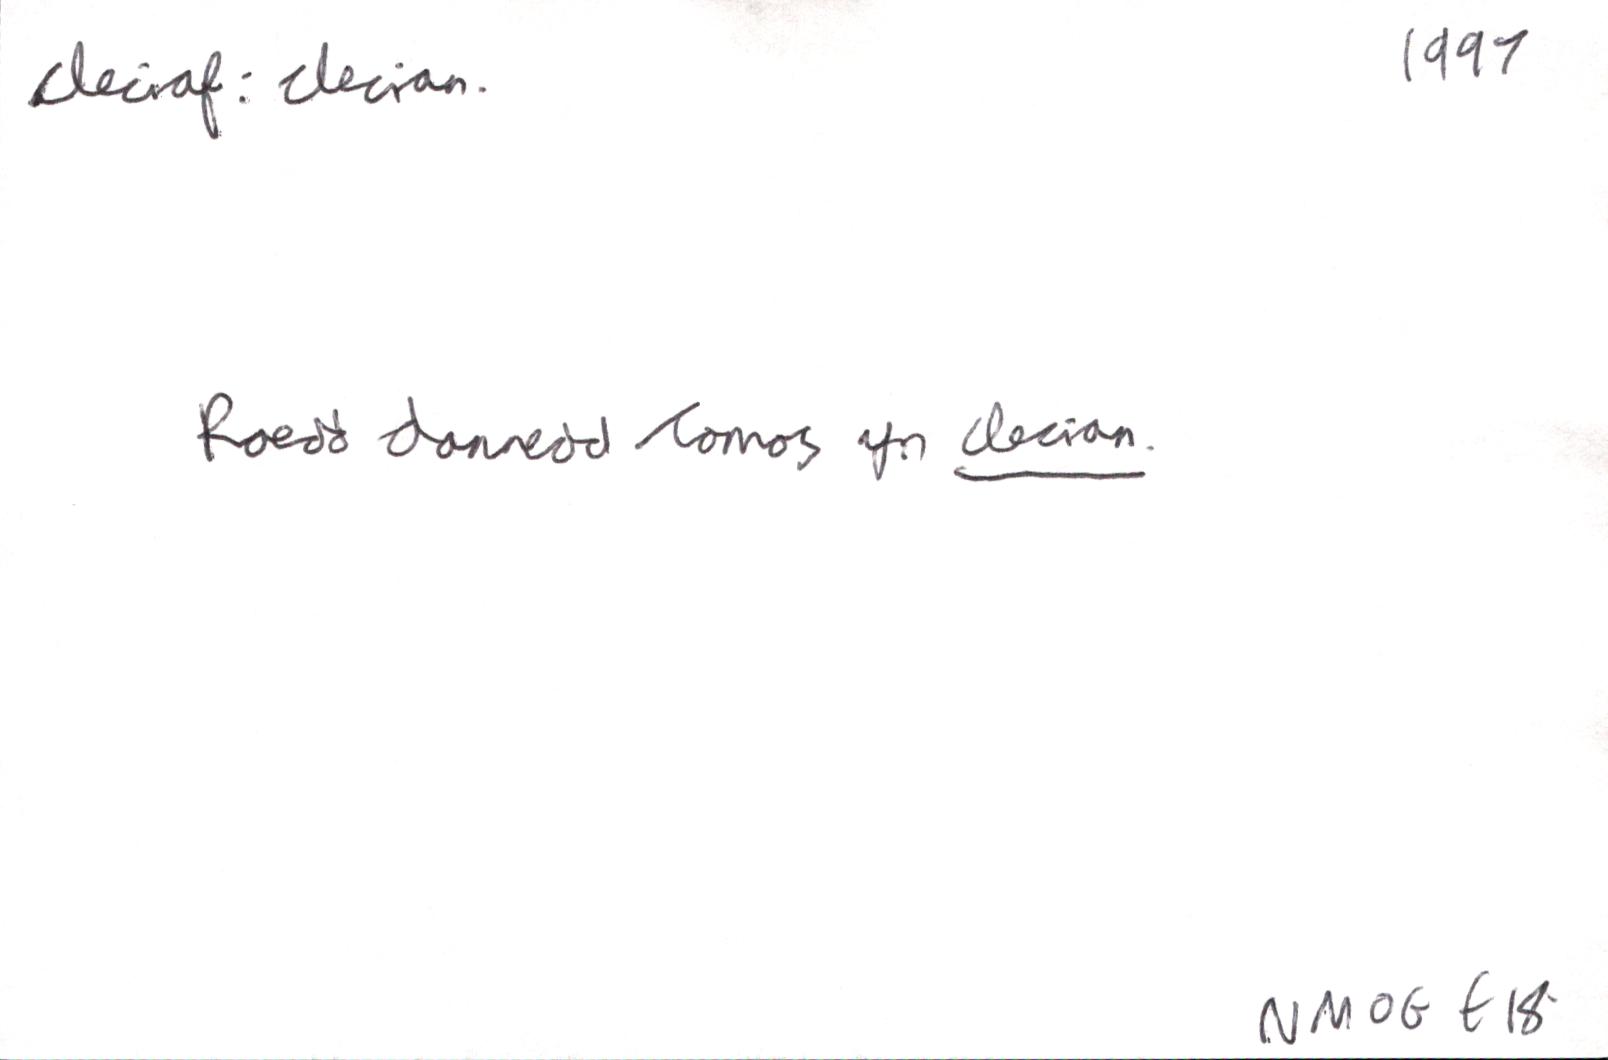 cleciaf: clecian.
1997
Roedd dannedd Tomos yn clecian.
NMOG E18